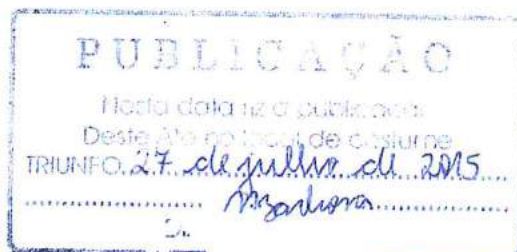 PUBLICAÇÃO
Nesta data fiz a publicação
Deste Ato no local de costume
TRIUNFO. 27 de julho de 2015